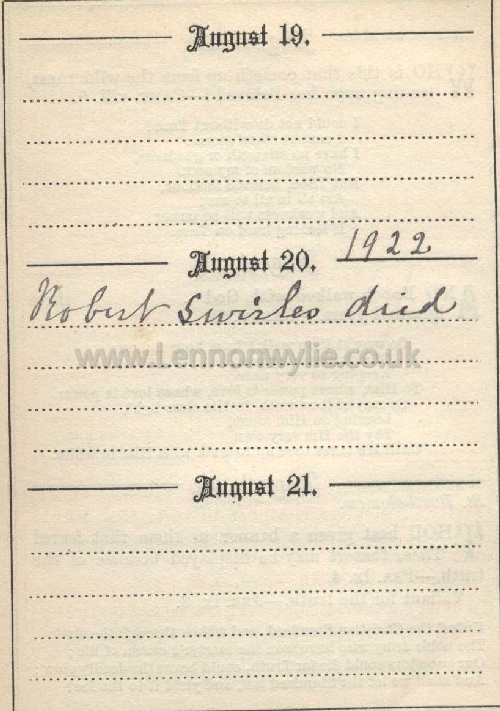 August 19.
August 20. 1922
Robert Swirles died
www.Lennonwylie.co.uk
August 21.